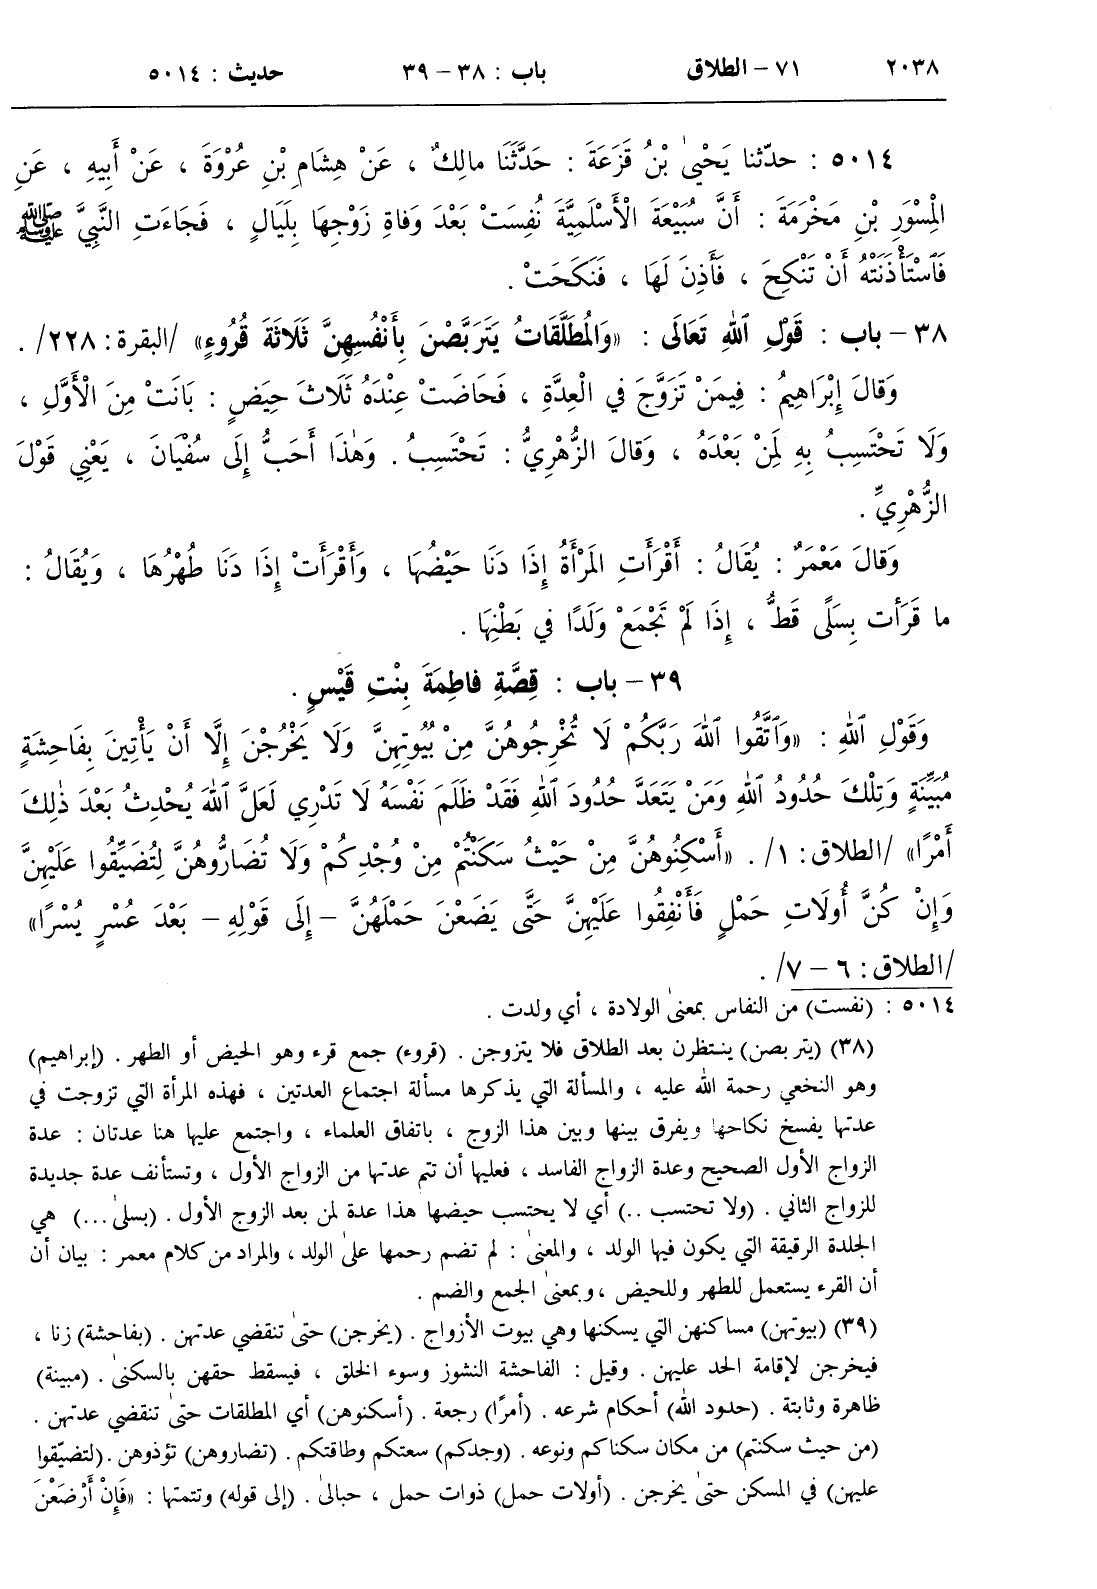 ٢٠٣٨ ٧١ - الطلاق باب : ٣٨ - ٣٩ حديث : ٥٠١٤
٥٠١٤ : حدّثنا يَحْيىٰ بْنُ قَزَعَةَ : حَدَّثَنَا مالِكٌ ، عَنْ هِشَامِ بْنِ عُرْوَةَ ، عَنْ أَبِيهِ ، عَنِ
الْمِسْوَرِ بْنِ مَخْرَمَةَ : أَنَّ سُبَيْعَةَ الْأَسْلَمِيَّةَ نُفِسَتْ بَعْدَ وَفاةِ زَوْجِهَا بِلَيَالٍ ، فَجَاءَتِ النَّبِيَّ ﷺ
فَٱسْتَأْذَنَتْهُ أَنْ تَنْكِحَ ، فَأَذِنَ لَهَا ، فَنَكَحَتْ .
٣٨ - باب : قَوْلِ ٱللهِ تَعَالَى : «وَالْمُطَلَّقَاتُ يَتَرَبَّصْنَ بِأَنْفُسِهِنَّ ثَلَاثَةَ قُرُوءٍ» /البقرة: ٢٢٨/ .
وَقالَ إِبْرَاهِيمُ : فِيمَنْ تَزَوَّجَ في الْعِدَّةِ ، فَحَاضَتْ عِنْدَهُ ثَلَاثَ حِيَضٍ : بَانَتْ مِنَ الْأَوَّلِ ،
وَلَا تَحْتَسِبُ بِهِ لِمَنْ بَعْدَهُ ، وَقالَ الزُّهْرِيُّ : تَحْتَسِبُ . وَهٰذَا أَحَبُّ إِلَى سُفْيَانَ ، يَعْنِي قَوْلَ
الزُّهْرِيِّ .
وَقالَ مَعْمَرٌ : يُقَالُ : أَقْرَأَتِ الْمَرْأَةُ إِذَا دَنَا حَيْضُهَا ، وَأَقْرَأَتْ إِذَا دَنَا طُهْرُهَا ، وَيُقَالُ :
ما قَرَأَت بِسَلًى قَطُّ ، إِذَا لَمْ تَجْمَعْ وَلَدًا في بَطْنِهَا .
٣٩ - باب : قِصَّةِ فاطِمَةَ بِنْتِ قَيْسٍ .
وَقَوْلِ ٱللهِ : «وَٱتَّقُوا ٱللهَ رَبَّكُمْ لَا تُخْرِجُوهُنَّ مِنْ بُيُوتِهِنَّ وَلَا يَخْرُجْنَ إِلَّا أَنْ يَأْتِينَ بِفَاحِشَةٍ
مُبَيِّنَةٍ وَتِلْكَ حُدُودُ ٱللهِ وَمَنْ يَتَعَدَّ حُدُودَ ٱللهِ فَقَدْ ظَلَمَ نَفْسَهُ لَا تَدْرِي لَعَلَّ ٱللهَ يُحْدِثُ بَعْدَ ذٰلِكَ
أَمْرًا» /الطلاق: ١/ . «أَسْكِنُوهُنَّ مِنْ حَيْثُ سَكَنْتُمْ مِنْ وُجْدِكُمْ وَلَا تُضَارُّوهُنَّ لِتُضَيِّقُوا عَلَيْهِنَّ
وَإِنْ كُنَّ أُولَاتِ حَمْلٍ فَأَنْفِقُوا عَلَيْهِنَّ حَتَّى يَضَعْنَ حَمْلَهُنَّ - إِلَى قَوْلِهِ - بَعْدَ عُسْرٍ يُسْرًا»
/الطلاق: ٦ - ٧/ .
٥٠١٤ : (نفست) من النفاس بمعنىٰ الولادة ، أي ولدت .
(٣٨) (يتربصن) ينتظرن بعد الطلاق فلا يتزوجن . (قروء) جمع قرء وهو الحيض أو الطهر . (إبراهيم)
وهو النخعي رحمة الله عليه ، والمسألة التي يذكرها مسألة اجتماع العدتين ، فهذه المرأة التي تزوجت في
عدتها يفسخ نكاحها ويفرق بينها وبين هذا الزوج ، باتفاق العلماء ، واجتمع عليها هنا عدتان : عدة
الزواج الأول الصحيح وعدة الزواج الفاسد ، فعليها أن تتم عدتها من الزواج الأول ، وتستأنف عدة جديدة
للزواج الثاني . (ولا تحتسب ..) أي لا يحتسب حيضها هذا عدة لمن بعد الزوج الأول . (بسلىٰ...) هي
الجلدة الرقيقة التي يكون فيها الولد ، والمعنىٰ : لم تضم رحمها علىٰ الولد ، والمراد من كلام معمر : بيان أن
أن القرء يستعمل للطهر وللحيض ، وبمعنىٰ الجمع والضم .
(٣٩) (بيوتهن) مساكنهن التي يسكنها وهي بيوت الأزواج . (يخرجن) حتىٰ تنقضي عدتهن . (بفاحشة) زنا ،
فيخرجن لإقامة الحد عليهن . وقيل : الفاحشة النشوز وسوء الخلق ، فيسقط حقهن بالسكنىٰ . (مبينة)
ظاهرة وثابتة . (حدود الله) أحكام شرعه . (أمرًا) رجعة . (أسكنوهن) أي المطلقات حتىٰ تنقضي عدتهن .
(من حيث سكنتم) من مكان سكناكم ونوعه . (وجدكم) سعتكم وطاقتكم . (تضاروهن) تؤذوهن . (لتضيّقوا
عليهن) في المسكن حتىٰ يخرجن . (أولات حمل) ذوات حمل ، حبالىٰ . (إلى قوله) وتتمتها : «فَإِنْ أَرْضَعْنَ